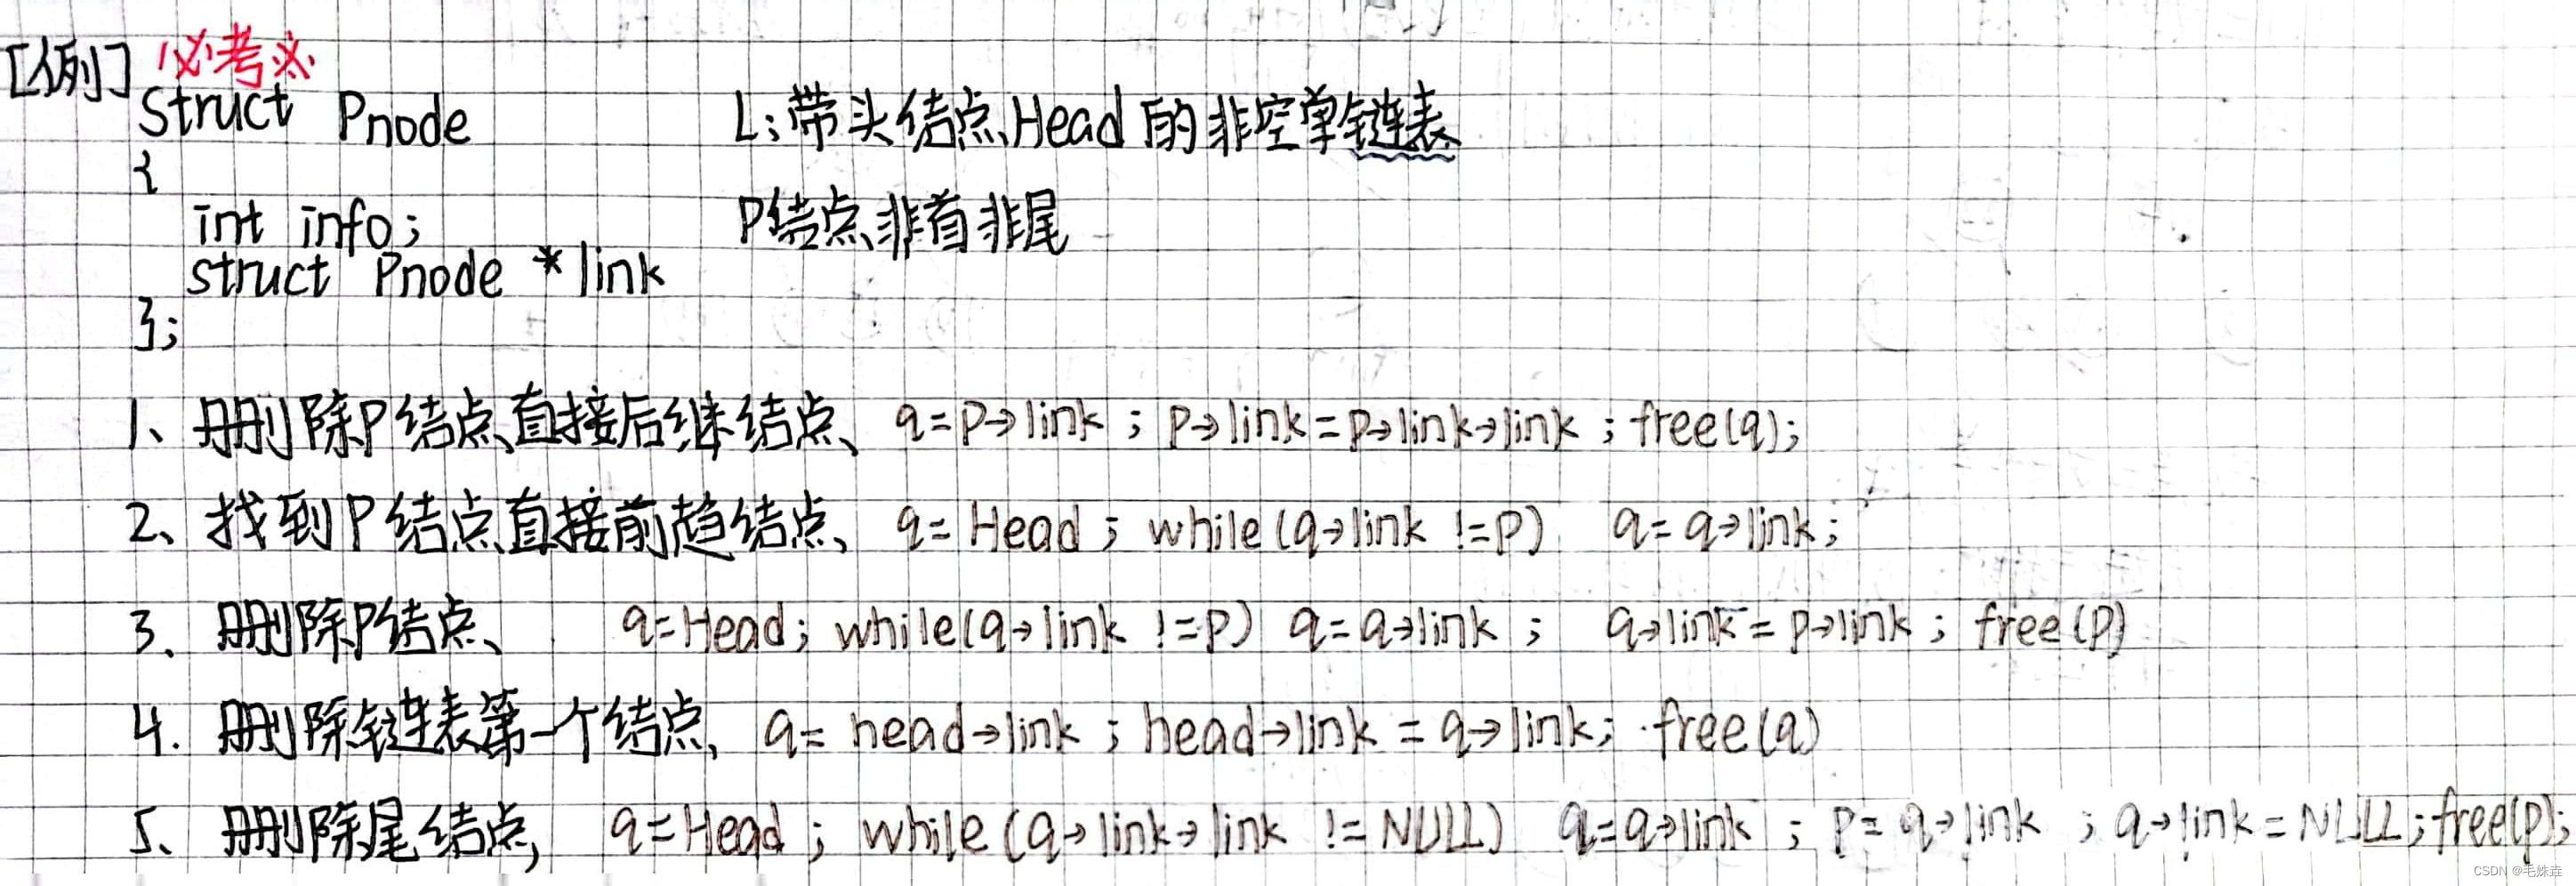 [例] 必考※
Struct Pnode
L:带头结点Head的非空单链表
{
int info;
P结点非首非尾
struct Pnode *link
};
1、删除P结点直接后继结点、 q=P→link ; P→link=P→link→link ; free(q);
2、找到P结点直接前趋结点、 q=Head ; while(q→link !=P) q=q→link;
3、删除P结点、 q=Head; while(q→link !=P) q=q→link ; q→link=P→link ; free(P)
4. 删除链表第一个结点, q=head→link ; head→link=q→link; free(q)
5、删除尾结点, q=Head ; while(q→link→link !=NULL) q=q→link ; P=q→link ; q→link=NULL;free(P);
CSDN @毛姝垚